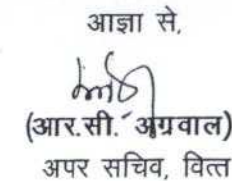 आज्ञा से,
(आर.सी. अग्रवाल)
अपर सचिव, वित्त